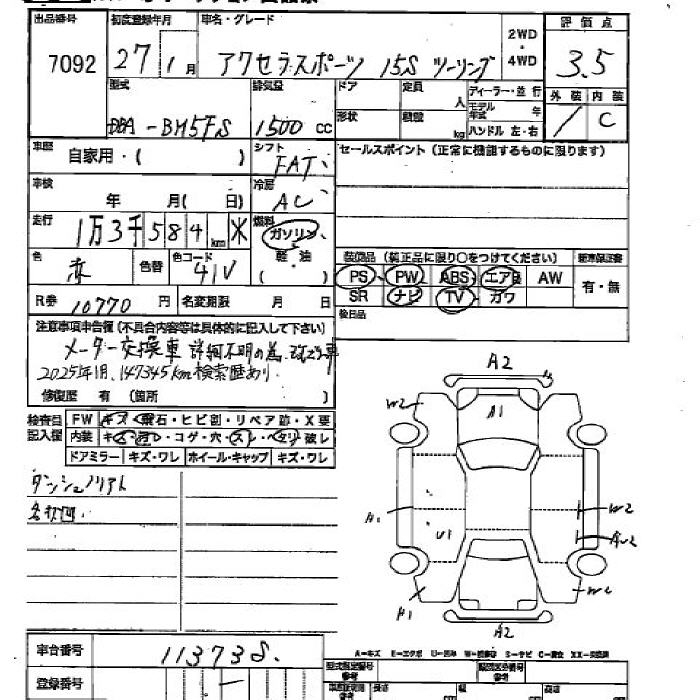 出品番号 7092
初度登録年月 27年1月
車名・グレード アクセラスポーツ 15S ツーリング
2WD・4WD
評価点 3.5
外装 / 内装 C
型式 DBA-BM5FS
排気量 1500cc
ドア 形状
定員 人
積載 kg
ディーラー・並行
モデル年式 年
ハンドル 左・右
車歴 自家用・( )
シフト FAT
セールスポイント (正常に機能するものに限ります)
車検 年 月( 日)
冷房 AC
走行 1万3千584km ※
燃料 ガソリン・軽油 ( )
色 赤 色替
色コード 41V
装備品 (純正品に限り○をつけてください)
PS PW ABS エアB AW
SR ナビ TV カワ
新車保証書 有・無
R券 10770円
名変期限 月 日
後日品
注意事項申告欄(不具合内容等は具体的に記入して下さい)
メーター交換車 詳細不明の為、改ざ車
2025年1月、147345km検索歴あり。
修復歴 有 (箇所 )
検査員記入欄
FW キズ・飛石・ヒビ割・リペア跡・X要
内装 キズ・コゲ・穴・スレ・ヘタリ・破レ
ドアミラー キズ・ワレ ホイール・キャップ キズ・ワレ
A2
W2
A1
A1
U1
W2
A1
W2
A2
車台番号 113738
登録番号
A-キズ E-エクボ U-凹み W-補修跡 S-サビ C-腐食 XX-交換済
型式指定番号 参考
類別区分番号 参考
長さ 幅 高さ